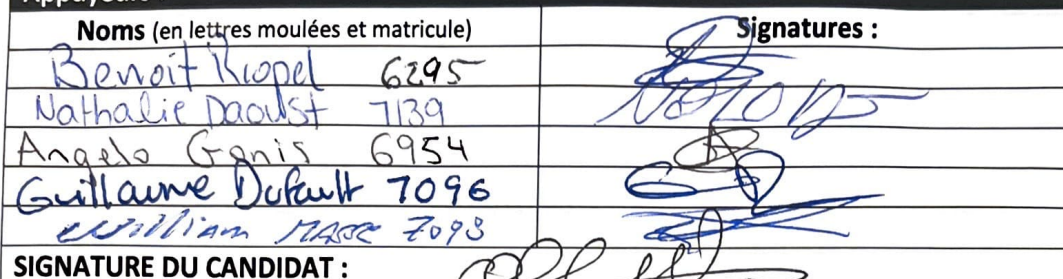 Noms (en lettres moulées et matricule) Signatures :
Benoit Riopel 6295
Nathalie Daoust 7139
Angelo Gonis 6954
Guillaume Dufault 7096
William MASSE 7098
SIGNATURE DU CANDIDAT :